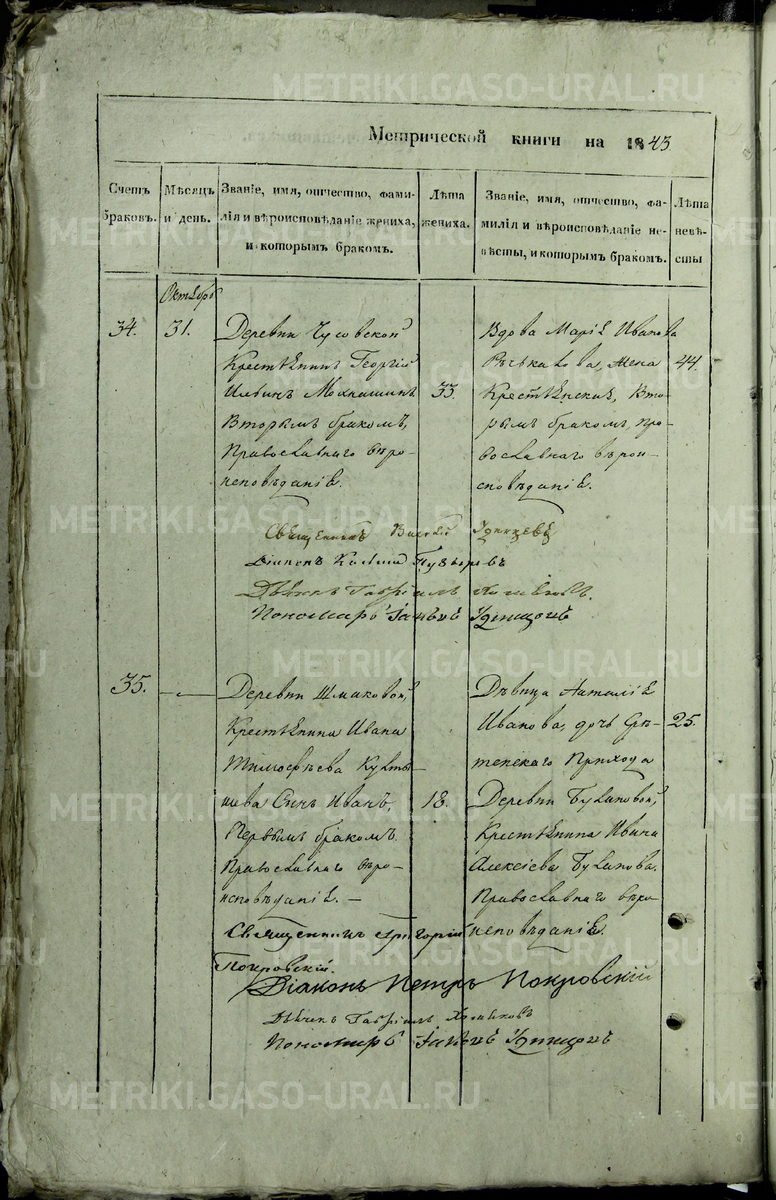 METRIKI.GASO-URAL.RU
Метрической книги на 1843
Счетъ браковъ.
Мѣсяцъ и день.
Званіе, имя, отчество, фами-
лія и вѣроисповѣданіе жениха,
и которымъ бракомъ.
Лѣта
жениха.
Званіе, имя, отчество, фа-
милія и вѣроисповѣданіе не-
вѣсты, и которымъ бракомъ.
Лѣта
невѣ-
сты
Октябрь
34.
31.
Деревни Чусовской
Крестьянинъ Георгій
Ильинъ
Вторымъ бракомъ,
Православнаго вѣро-
исповѣданія.
33.
Вдова Марія Иванова
жена
Крестьянская, Вто-
рымъ бракомъ, пра-
вославнаго вѣрои-
сповѣданія.
44.
Священникъ Василій Удинцевъ
Діаконъ Косма Пузыревъ
Дьячекъ Гавріилъ
Пономарь Іаковъ Удинцовъ
35.
Деревни Шмаковой,
Крестьянина Ивана
Тимофѣева Кукты-
шева Сынъ Иванъ,
Первымъ бракомъ
Православнаго вѣро-
исповѣданія. —
18.
Дѣвица Наталія
Иванова, дочь Срѣ-
тенскаго Прихода
Деревни Булановой,
Крестьянина Ивана
Алексіева Буланова,
Православнаго вѣро-
исповѣданія.
25.
Священникъ Григорій
Покровскій.
Діаконъ Петръ Покровскій
Дьячекъ Гавріилъ
Пономарь Іаковъ Удинцовъ